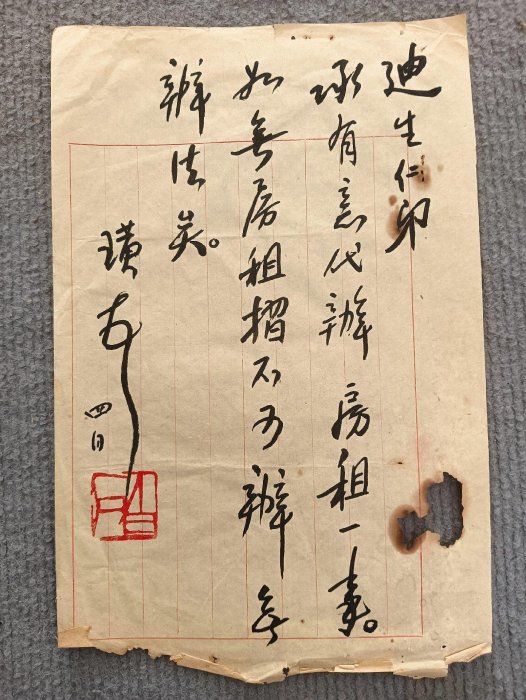 迪生仁卯
承有意代辦房租一事。
如無房租摺不可辦無
辦法矣。
璜
四日